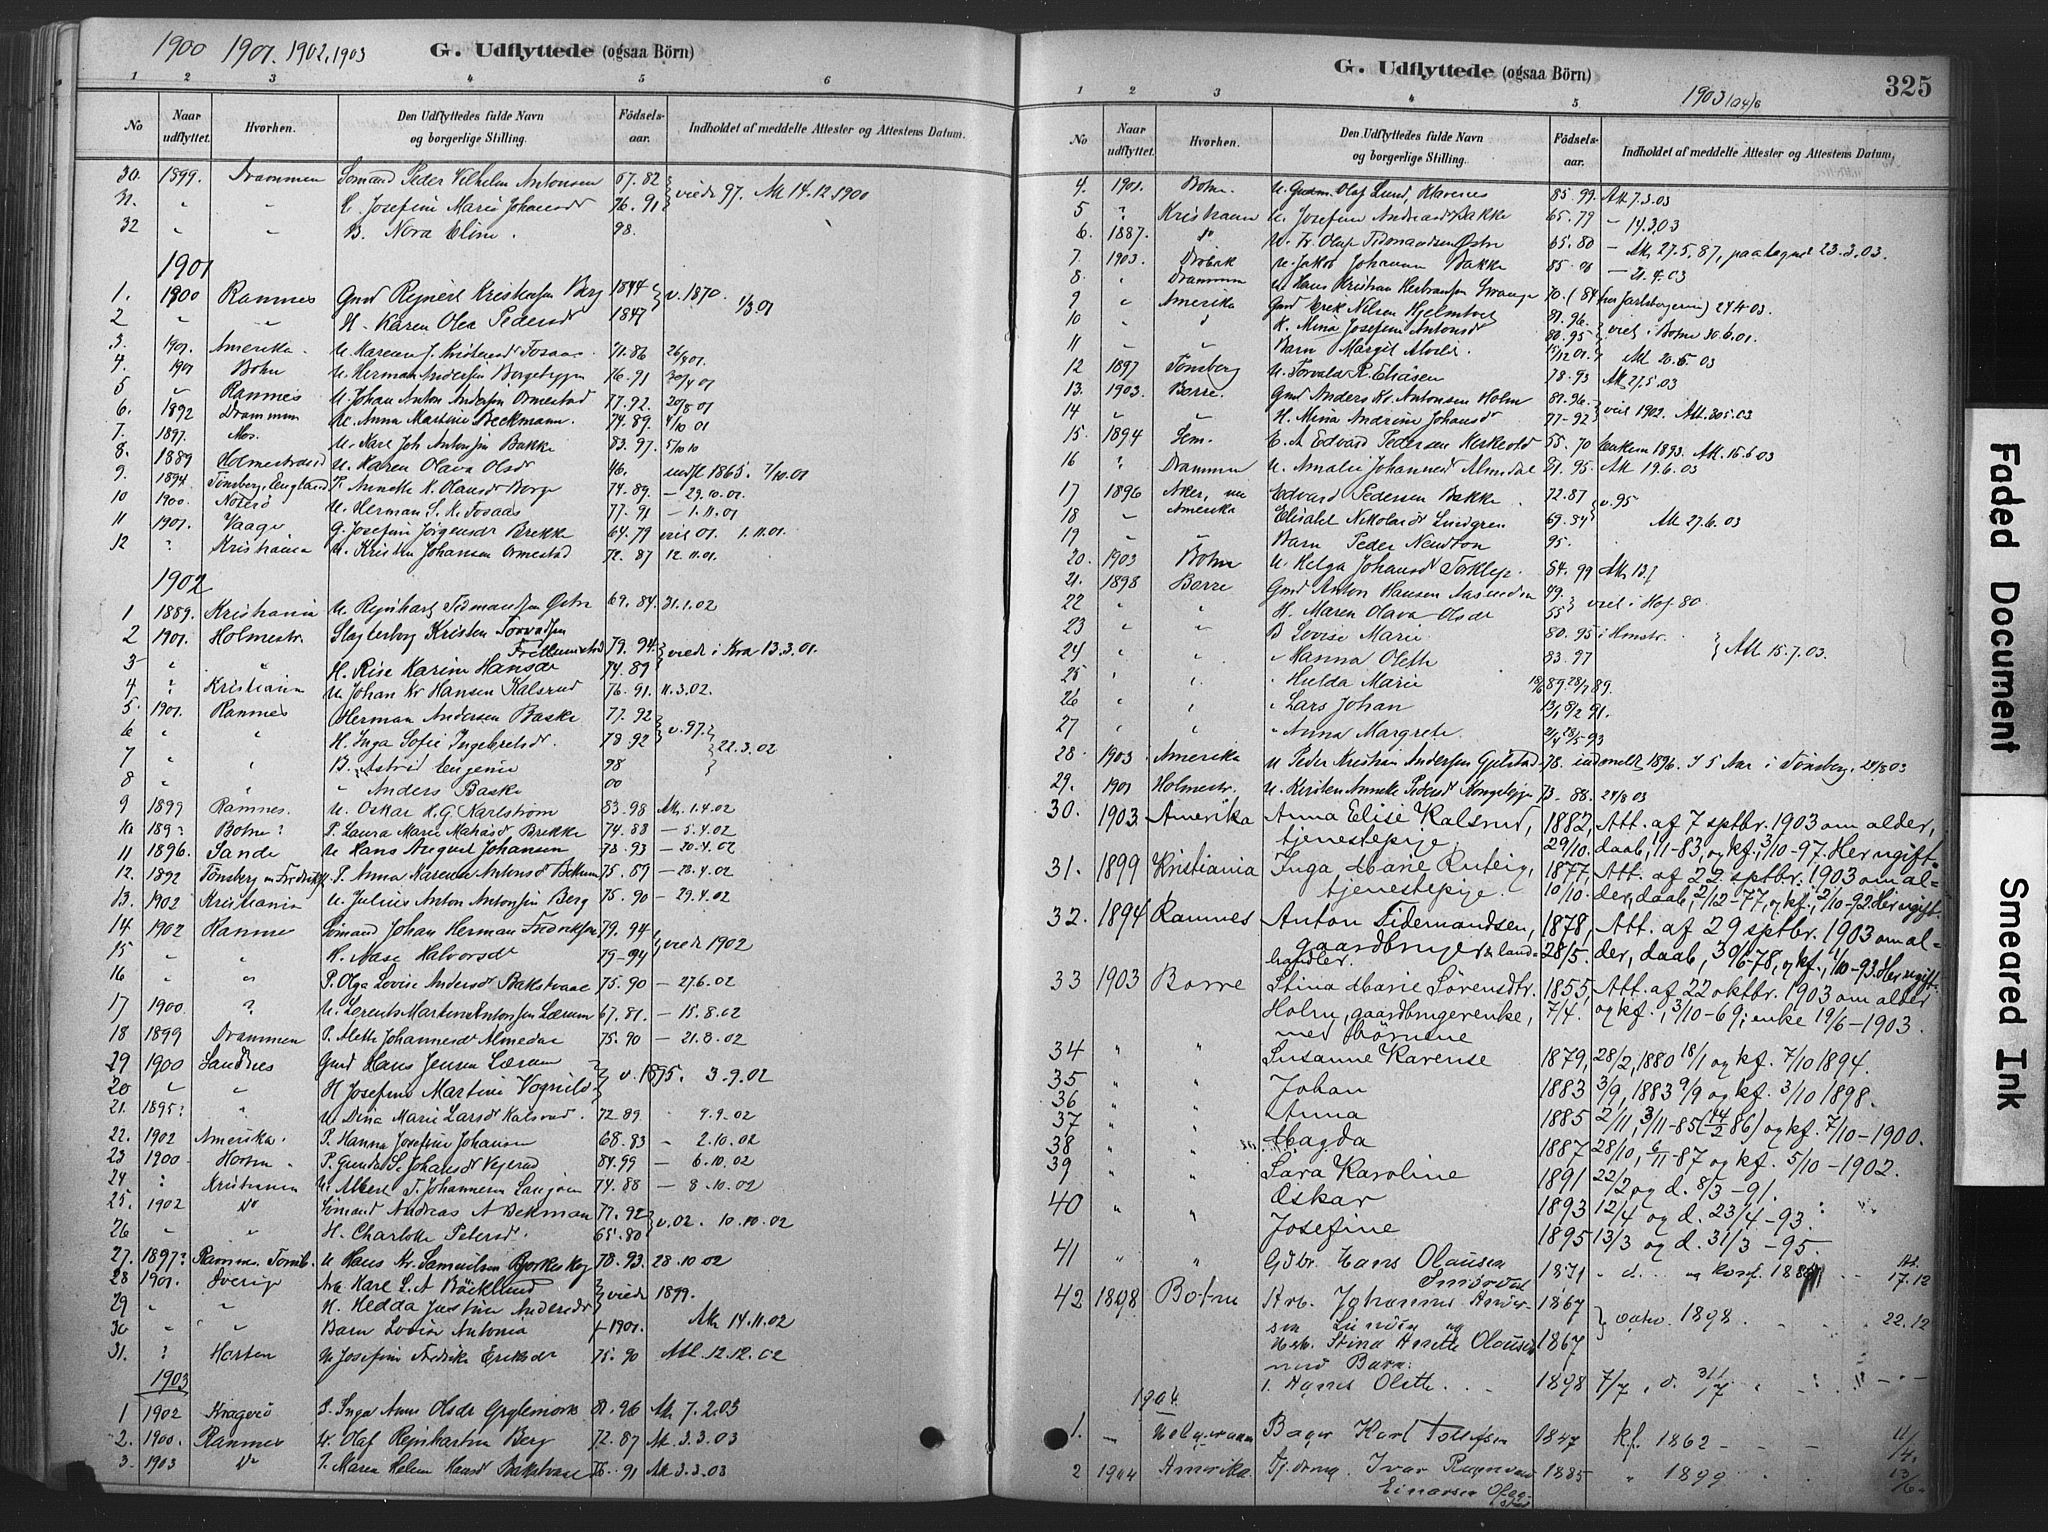 1900 1901. 1902, 1903
G. Udflyttede (ogsaa Börn)
1 2 3 4 5 6
No Naar udflyttet. Hvorhen. Den Udflyttedes fulde Navn og borgerlige Stilling. Födsels-aar. Indholdet af meddelte Attester og Attestens Datum.
30. 1899. Drammen Sömand Peder Vilhelm Antonsen 67. 82 } viede 97. Att 14.12.1900
31. " " Josefine Marie Johansdt 76. 91
32 " " B. Nora Eline. 98.
1901
1. 1900 Ramnes Gmd Rejnert Kristensen Berg 1844 } v. 1870. 1/3 01
2 " " H. Karen Olea Pedersdt 1847
3. 1901. Amerika. U. Maren J. Kristensdt Fosaas. 71. 86 26/
4. 1901 Botne U. Herman Andersen 76. 91 30/4 01
5 " Ramnes U. Johan Anton Andersen Ormestad 77. 92. 20/8 01
6. 1892 Drammen U. Anna Martine Beckmann. 74. 89. 4/10 01
7. 1897. Mos. U. Karl Joh. Antonsen Bakke 83. 97. 5/10
8. 1889 Holmestrand U. Karen Olava Olsdt 46. indfl 1865. 7/10.01
9. 1894. Tönsberg, England P. Annette K. Olausdt Borge 74. 89. – 29.10.01.
10 1900. Noterö U. Herman S. K. Fosaas 77. 91 – 1.11.01
11 1901. Vaage G. Josefine Jörgensdt Brekke 64. 79 viet 01. 1.11.01.
12 ? Kristiania U. Kristen Johansen Ormestad 72. 87 12.11.01.
1902
1 1889. Kristiania U. Rejnhart Tidmandsen Östre 69. 84. 31.1.02
2 1901. Holmestr. Slagterborg Kristen Torvaldsen 79. 94. } viede i Kra 13.3.01.
3 " " H. Rise Karine Hansdt 74. 89
4 ? Kristiania U. Johan Kr Hansen Kalsrud 76. 91. 11.3.02.
5. 1901. Ramnes Herman Andersen Baske 77. 92 } v. 97.
6 " " H. Inga Sofie Ingebretsdt. 78. 92 } 22.3.02
7 " " B. Astrid Eugenie 98
8 " " " Anders Baske 00
9 1899 Ramnes. U. Oskar K. G. Karlström 83. 98 Att. 1.4.02
10 189? Botne? P. Laura Marie Brekke 74. 88 – 5.4.02
11 1896. Sande U Hans Johansen 78. 93 – 20.4.02
12. 1892 Tönsberg P. Anna Karen Antonsdt 75. 89 – 28.4.02
13. 1902 Kristiania U. Julius Anton Antonsen Berg 75. 90 – 29.4.02
14 1902 Ramnes Sömand Johan Herman Fredriksen 79. 94 } viede 1902
15 " " H. Aase Halvorsdt 79–94
16 " " P. Olga Lovise Andersdt Bakstvaal 75. 90 – 27.6.02
17 1900. ? U. Lorents Martin Antonsen Lærum 67. 81. – 15.8.02
18 1899 Drammen P. Aleth Johannesdt Almedal 75. 90 – 21.8.02
29 1900 Sandnes Gmd Hans Jensen Lærum } v. 1895. 3.9.02
20 " " H Josefine Martine Vognild
21. 1895? " U Dina Marie Larsdt Kalsrud. 72 89 9.9.02
22. 1902 Amerika. P. Hanna Josefine Johansen 68. 83 – 2.10.02
23 1900 Horten. P. Gunda S. Johansdt Vejerød 84. 99 – 6.10.02
24 ? Kristiania U. Albert T. Johannesen 74. 88 – 8.10.02
25. 1902 do Sömand Andreas A Bekman 77. 92 } v. 02. 10.10.02
26 " " H. Charlotte Petersdt. 65. 80
27. 1897? Ramnes. Tönsb. U Hans Kr. Samuelsen 78. 93. 28.10.02
28 1901. Sverige Karl L. A. Böcklund } viede 1899.
29 " " H. Hedda Justine Andersdt
30 " " Barn Lovise Antonia – 1901. Att 14.11.02
31. ? Horten U Josefine Fredrike Eriksdt 75. 90 Att. 12.12.02
1903
1 1902 Kragerö P. Inga Anne Olsdt 81. 96 Att. 7.2.03
2. 1900. Ramnes U. Olaf Rejnhartsen Berg 72. 87 Att. 3.3.03
3. 1903 do P. Maren Helene Hansdt Bakstvaal 76. 91 Att. 3.3.03
G. Udflyttede (ogsaa Börn) 1903/04/ 325
1 2 3 4 5
No Naar udflyttet. Hvorhen. Den Udflyttedes fulde Navn og borgerlige Stilling. Födsels-aar. Indholdet af meddelte Attester og Attestens Datum.
4. 1901. Botne. U. Gudm. Olaf Lund, Klavenes 85. 99 Att 7.3.03
5 ? Kristiania U. Josefine Andreasdt Bakke 65. 79 – 14.3.03
6. 1887. do U. Fr. Olaf Tidmandsen Östre 65. 80 – Att. 27.5.87, paategnet 23.3.03.
7. 1903. Dröbak U. Jakob Johannesen Bakke 85. – 21.4.03
8 " Drammen U. Hans Kristian Herbransen 70. (84 ) 24.4.03
9 " Amerika Gmd Erik Nilsen Hjelmtvet 81. 96. } viet i Botne 30.6.01.
10 " " H. Mina Josefine Antonsdt 80. 95
11 " " Barn Margit Alvilde. 15/12 01. Att 20.5.03
12 1897 Tönsberg U. Torvald R. Eliasen 78. 93 Att. 27.5.03
13. 1903. Borre. Gmd Anders Kr. Antonsen Holm 81. 96. } viet 1902. Att. 30.5.03
14 " " H. Mina Andrine Johansdt 77–92
15. 1894 Sem. E. A. Edvard Pedersen 55. 70 Enkem 1893. Att. 16.6.03
16 ? Drammen U. Amalie Johannesdt Almedal 81. 95. Att 19.6.03
17 1896 Aker, nu Amerika Edvard Pedersen Bakke. 72. 87 } v. 95
18 " Elisabet Nikolaisdt Lindgren 69. 84 Att 27.6.03
19 " " Barn Peder Newton 95.
20. 1903 Botne U. Helga Johansdt Torklep. 84. 99 Att. 13/
21. 1898 Borre Gmd Anton Hansen 49. } viet i Hof 80.
22 " " H. Maren Olava Olsdt 55
23 " " B Lovise Marie. 80. 95 i Hmstr. } Att 15.7.03.
24 " " " Hanna Oleth 83. 97
25 " " " Hulda Marie 18/6 89. 28/7 89.
26 " " " Lars Johan 13/1 8/2 91.
27 " " " Anna Margrete. 21/4 28/5 93
28 1903 Amerika U Peder Kristian Andersen Gjelstad 78. indmeldt 1896. I 5 Aar i Tönsberg. 24/8 03
29. 1901 Holmestr. U. Kirsten Anneke Pedersdt 73. 88. 24/8 03
30. 1903 Amerika Anna Elise Kalsrud, 1882, Att. af 7 sptbr. 1903 om alder,
tjenestepige, 29/10. daab, 1/1–83, og kf., 3/10–97. Her ugift.
31. 1899 Kristiania Inga Marie Ruteig, 1877, Att. af 22 sptbr. 1903 om al-
tjenestepige. 10/10. der, daab, 2/12–77, og kf., 2/10–92. Her ugift.
32. 1894 Ramnes Anton Tidemandsen, 1878, Att. af 29 sptbr. 1903 om al-
gaardbruger & land- 28/5. der, daab, 30/6–78, og kf., 1/10–93. Her ugift.
handler.
33 1903 Borre Stina Marie Sörensdtr. 1855, Att. af 22 oktbr. 1903 om alder
Holm, gaardbrugerenke, 7/4. og kf., 3/10–69; enke 19/6–1903.
med börnene
34 " " Susanne Karense 1879, 28/2, 1880 18/1 og kf. 7/10 1894.
35 " " Johan 1883 3/9, 1883 9/9 og kf. 3/10 1898.
36 " " Anna 1885 2/11, 3/11–85 (14/2 86) og kf. 7/10–1900.
37 " " Magda 1887 28/10, 6/11–87 og kf. 5/10–1902.
38 " " Sara Karoline 1891 22/2 og d. 8/3–91.
39 " " Oskar 1893 12/4 og d. 23/4–93.
40 " " Josefine 1895 13/3 og d. 31/3–95.
41 " " Gdbr. Hans Olausen 1871 " d. " konf. Att. 17.12
42 1898 Botne Krb. Johannes Ander- 1867 } viet 1898. 22.12
sen og
Stina Anette Olausen 1867
med Barn:
1. Agnes Oleth 1898 7/7, d. 31/7
1904
1. – Bager Karl Tollefsen 1847 kf. 1862
2 1904 Amerika Ivar 1885 " 1899 13/6
Einarsen
Faded Document
Smeared Ink